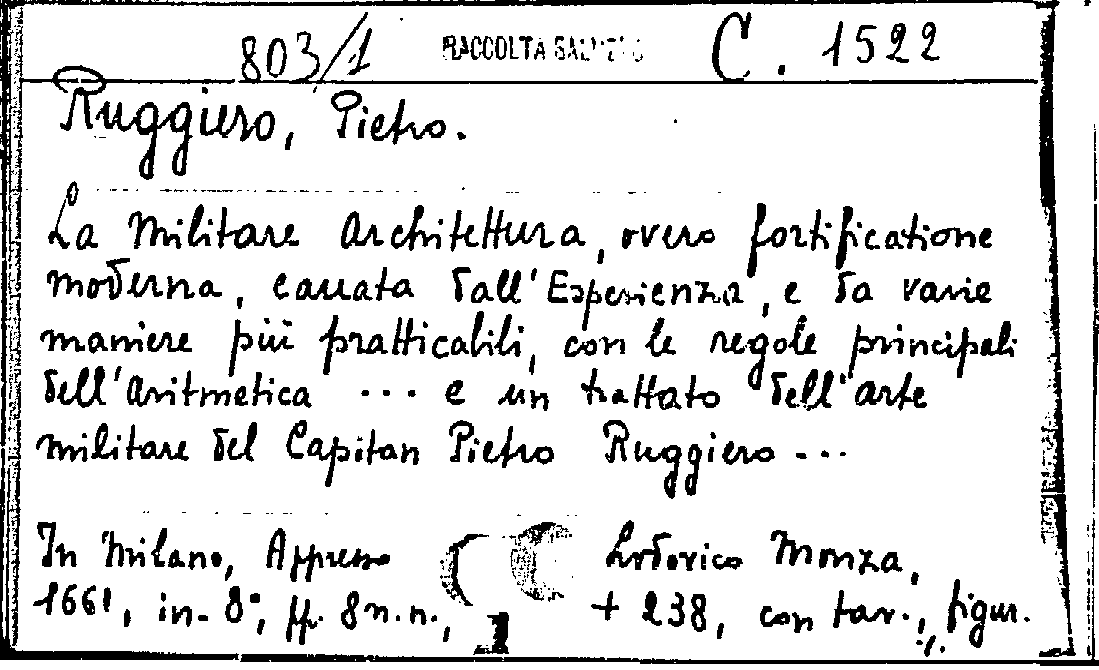 803/1 RACCOLTA C. 1522
Ruggiero, Pietro.
La Militare Architettura, overo fortificatione
moderna, cauata dall'Esperienza, e da varie
maniere più pratticabili, con le regole principali
dell'Aritmetica ... e un trattato dell'arte
militare del Capitan Pietro Ruggiero ...
In Milano, Appresso Lodovico Monza,
1661, in-8°, pp. 8 n.n., + 238, con tav., figur.
1 ./.